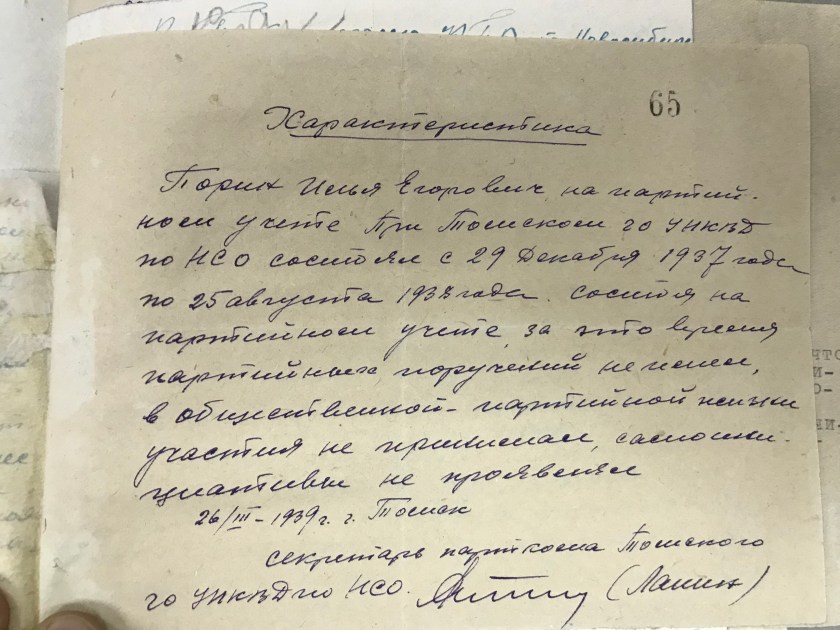 Новосибир
65
Характеристика
Порин Илья Егорович, на партий-
ном учете При Томском го УНКВД
по НСО состоял с 29 Декабря 1937 года
по 25 августа 1938 года. состоя на
партийном учете, за это время
партийных поручений не имел,
в общественной-партийной жизни
участия не принимал, самоини-
циативы не проявлял
26/III-1939 г. г. Томск
секретарь парткома Томского
го УНКВД по НСО. (Лапин)
что
и-
о-
ни-